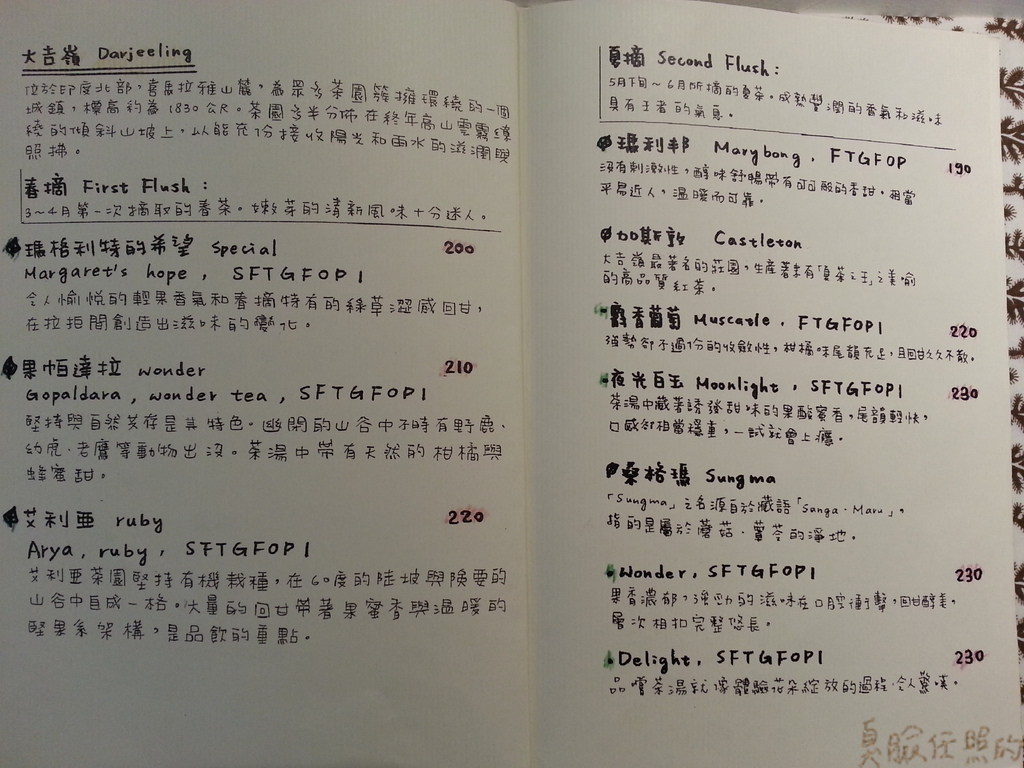 大吉嶺 Darjeeling
位於印度北部，喜馬拉雅山麓，為眾多茶園簇擁環繞的一個
城鎮，標高約為1830公尺。茶園多半分佈在終年高山雲霧繚
繞的傾斜山坡上，以能充份接收陽光和雨水的滋潤與
照拂。
春摘 First Flush：
3～4月第一次摘取的春茶。嫩芽的清新風味十分迷人。
瑪格利特的希望 Special 200
Margaret's hope, SFTGFOP1
令人愉悅的輕果香氣和春摘特有的綠草澀感回甘，
在拉拒間創造出滋味的變化。
果帕達拉 wonder 210
Gopaldara, wonder tea, SFTGFOP1
堅持與自然共存是其特色。幽閑的山谷中不時有野鹿、
幼虎、老鷹等動物出沒。茶湯中帶有天然的柑橘與
蜂蜜甜。
艾利亜 ruby 220
Arya, ruby, SFTGFOP1
艾利亜茶園堅持有機栽種，在60度的陡坡與險要的
山谷中自成一格。大量的回甘帶著果蜜香與溫暖的
堅果系架構，是品飲的重點。
夏摘 Second Flush：
5月下旬～6月所摘的夏茶。成熟豐潤的香氣和滋味
具有王者的氣息。
瑪利邦 Marybong, FTGFOP 190
沒有刺激性，醇味舒暢帶有可可般的香甜，相當
平易近人，溫暖而可靠。
加斯敦 Castleton
大吉嶺最著名的莊園，生產著素有「夏茶之王」之美喻
的高品質紅茶。
麝香葡萄 Muscatle, FTGFOP1 220
強勢卻不過份的收斂性，柑橘味尾韻充足，且回甘久久不散。
夜光白玉 Moonlight, SFTGFOP1 230
茶湯中藏著誘發甜味的果酸蜜香，尾韻輕快，
口感卻相當穩重，一試就會上癮。
桑格瑪 Sungma
「Sungma」之名源自於藏語「Sanga・Maru」，
指的是屬於蘑菇、蕈苓的淨地。
Wonder, SFTGFOP1 230
果香濃郁，強勁的滋味在口腔衝擊，回甘醇美，
層次相扣完整悠長。
Delight, SFTGFOP1 230
品嚐茶湯就像體驗花朵綻放的過程，令人驚嘆。
臭臉任照的